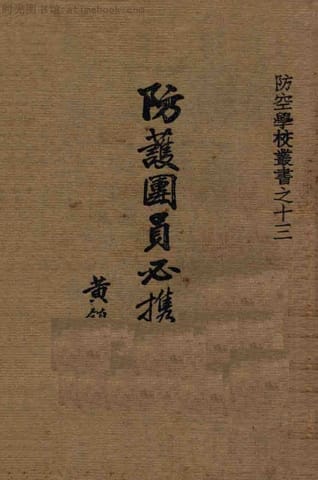 时光图书馆·atimebook.com
防空學校叢書之十三
防護團員必携
黃